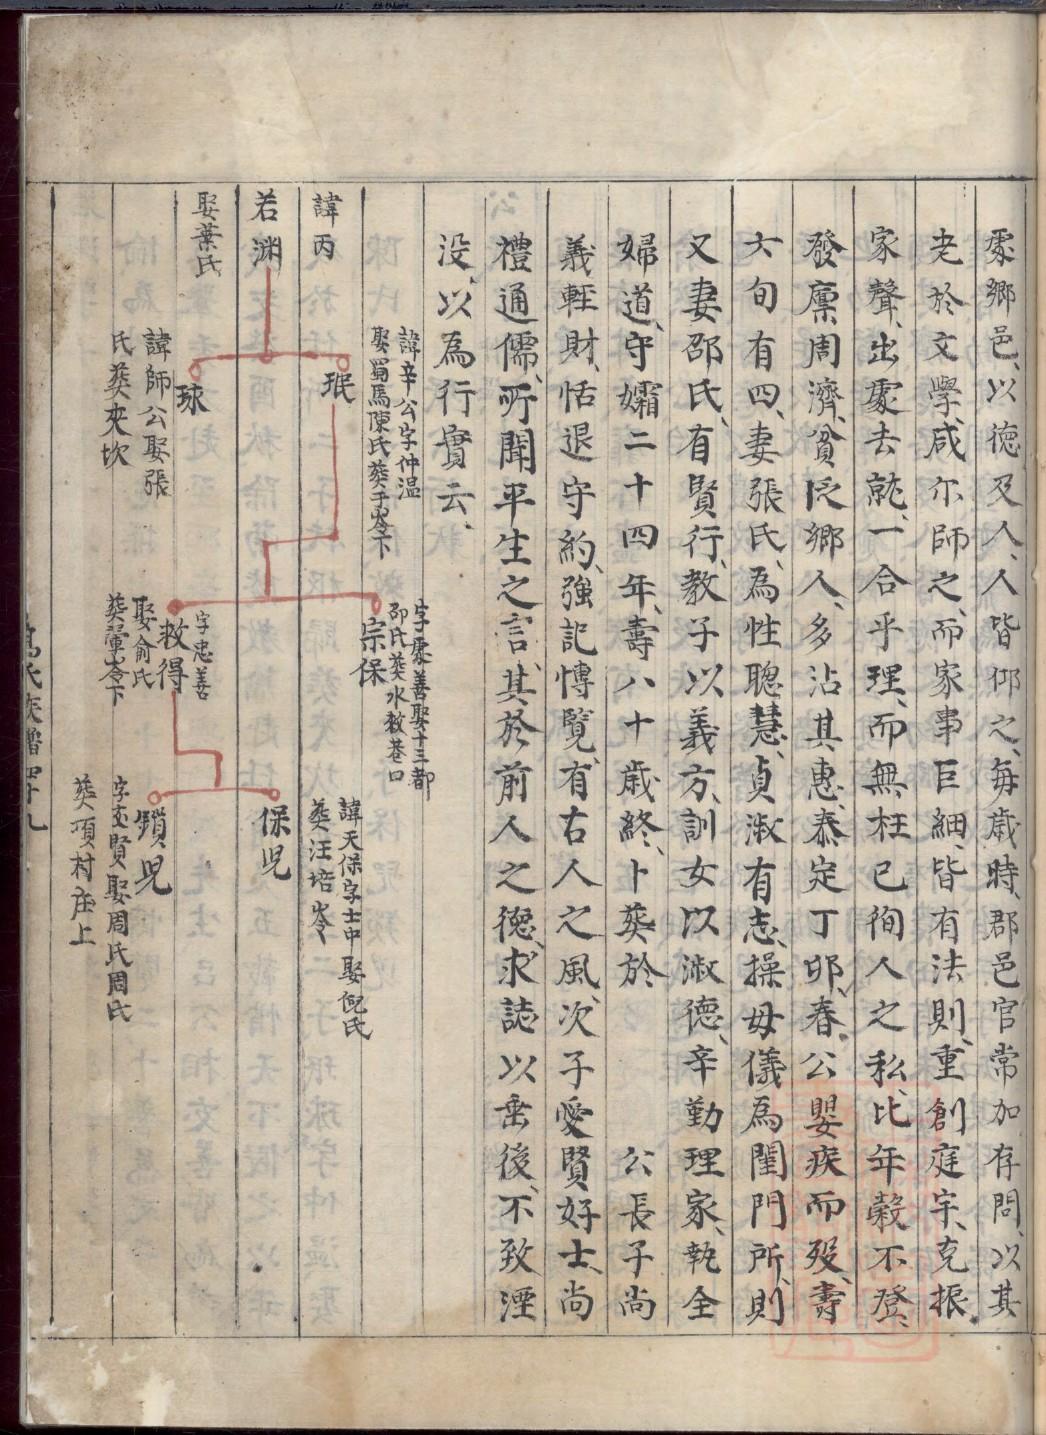 處鄉邑以德及人人皆仰之每歲時郡邑官常加存問以其
老於文學咸尔師之而家事巨細皆有法則重創庭宇克振
家聲出處去就一合乎理而無枉已徇人之私比年穀不登
發廪周濟貧乏鄉人多沾其惠泰定丁卯春公嬰疾而歿壽
六旬有四妻張氏為性聰慧貞淑有志操母儀為閨門所則
又妻邵氏有賢行教子以義方訓女以淑德辛勤理家執全
婦道守孀二十四年壽八十歲終卜葬於　　公長子尚
義輕財恬退守約強記博覽有古人之風次子愛賢好士尚
禮通儒所聞平生之言其於前人之德求誌以垂後不致湮
没以為行實云
諱辛公字仲溫
娶蜀馬陳氏葬于岺下
字處善娶十三都
邵氏葬水救巷口
宗保
諱丙
珉
諱天保字士中娶倪氏
葬汪培岺
若渊
保児
娶葉氏
球
字忠善
救得
諱師公娶張
氏葬夾坎
娶俞氏
葬潭岺下
鎖児
字文賢娶周氏周氏
葬項村庄上
氏族譜四十九